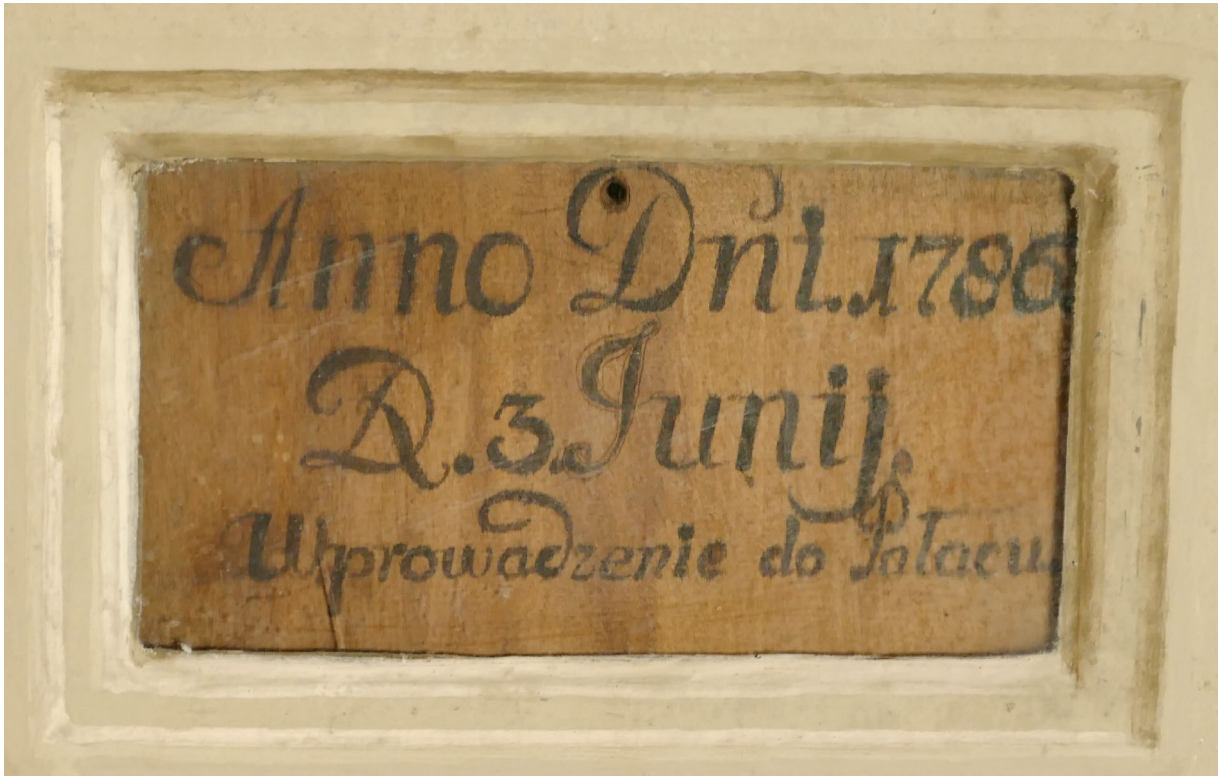 Anno Dni. 1786
D. 3. Junij.
Wprowadzenie do Pałacu.